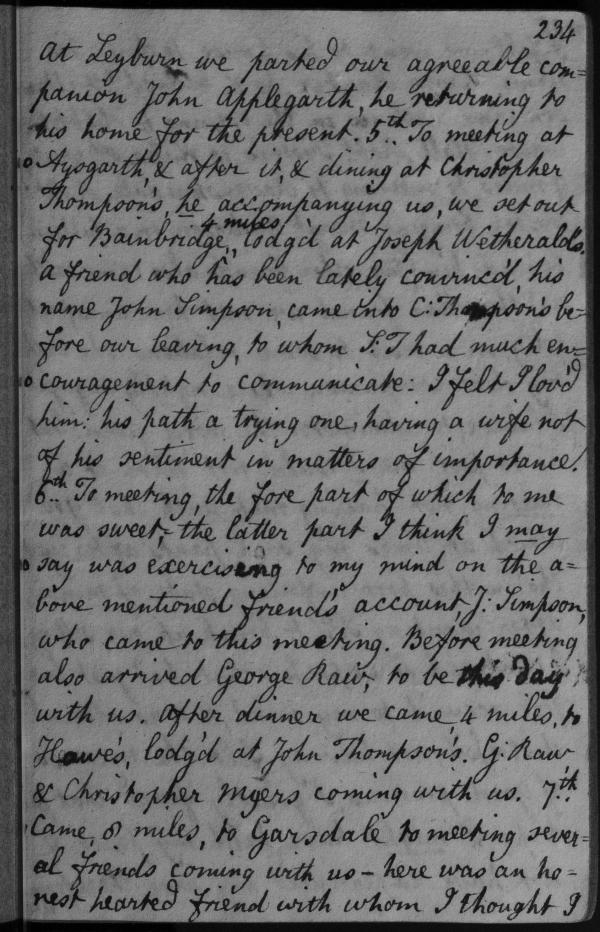 234
At Leyburn we parted our agreeable com=
panion John Applegarth, he returning to
his home for the present. 5th.. To meeting at
Aysgarth, & after it, & dining at Christopher
Thompson's, he accompanying us, we set out
4 miles
for Bainbridge, lodg'd at Joseph Wetherald's.
a friend who has been lately convinc'd, his
name John Simpson, came into C: Thompson's be=
fore our leaving, to whom S: T had much en=
couragement to communicate: I felt I lov'd
him: his path a trying one, having a wife not
of his sentiment in matters of importance.
6th.. To meeting, the fore part of which to me
was sweet,- the latter part I think I may
say was exercising to my mind on the a=
bove mentioned friend's account, J: Simpson,
who came to this meeting. Before meeting
also arrived George Raw, to be this day
with us. After dinner we came, 4 miles, to
Hawes, lodg'd at John Thompson's. G: Raw
& Christopher Myers coming with us. 7th..
Came, 8 miles, to Garsdale to meeting sever=
al friends coming with us - here was an ho=
nest hearted friend with whom I thought I